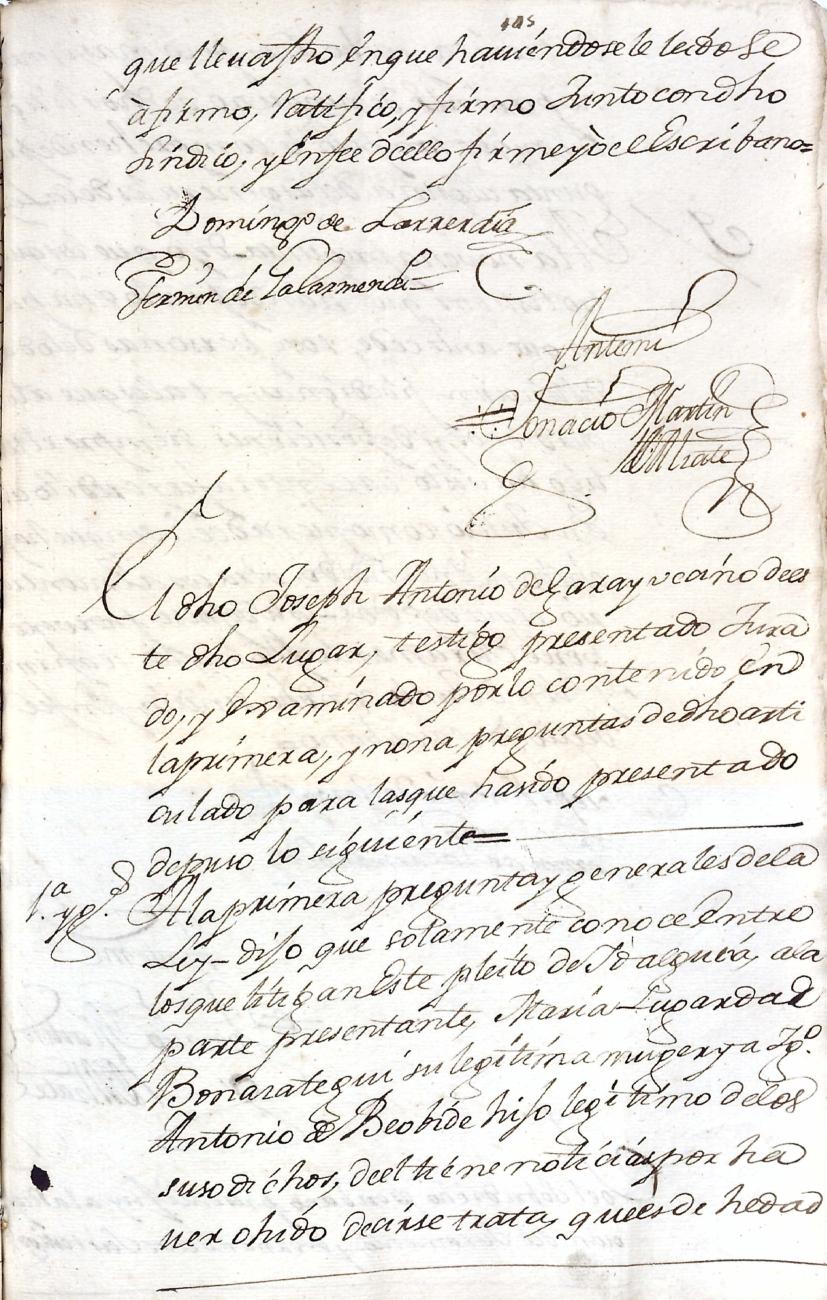 105
que lleva fho en que haviendosele leido Se
afirmo, Ratifico, y firmo Junto con dho
Sindico, y En fee de ello firme yo el Escribano=
Domingo de Larrerdia
Fermin de Galarmendi
Antemi
Ygnacio Martin
de Alzate
El dho Joseph Antonio de Garay vecino de es
te dho Lugar, testigo presentado Jura
do, y Examinado por lo contenido En
la primera, y nona preguntas de dho arti
culado para las que ha sido presentado
depuso lo siguiente=
1.ª y g.s A la primera pregunta y generales de la
Ley– dijo que solamente conoce Entre
los que litigan Este pleito de Idalguia, a la
parte presentante, Maria Lugarda de
Bonarategui su legitima muger y a Yg.º
Antonio de Beobide hijo legitimo de los
susodichos, de el tiene noticias por ha
uer ohido decir se trata, que es de hedad